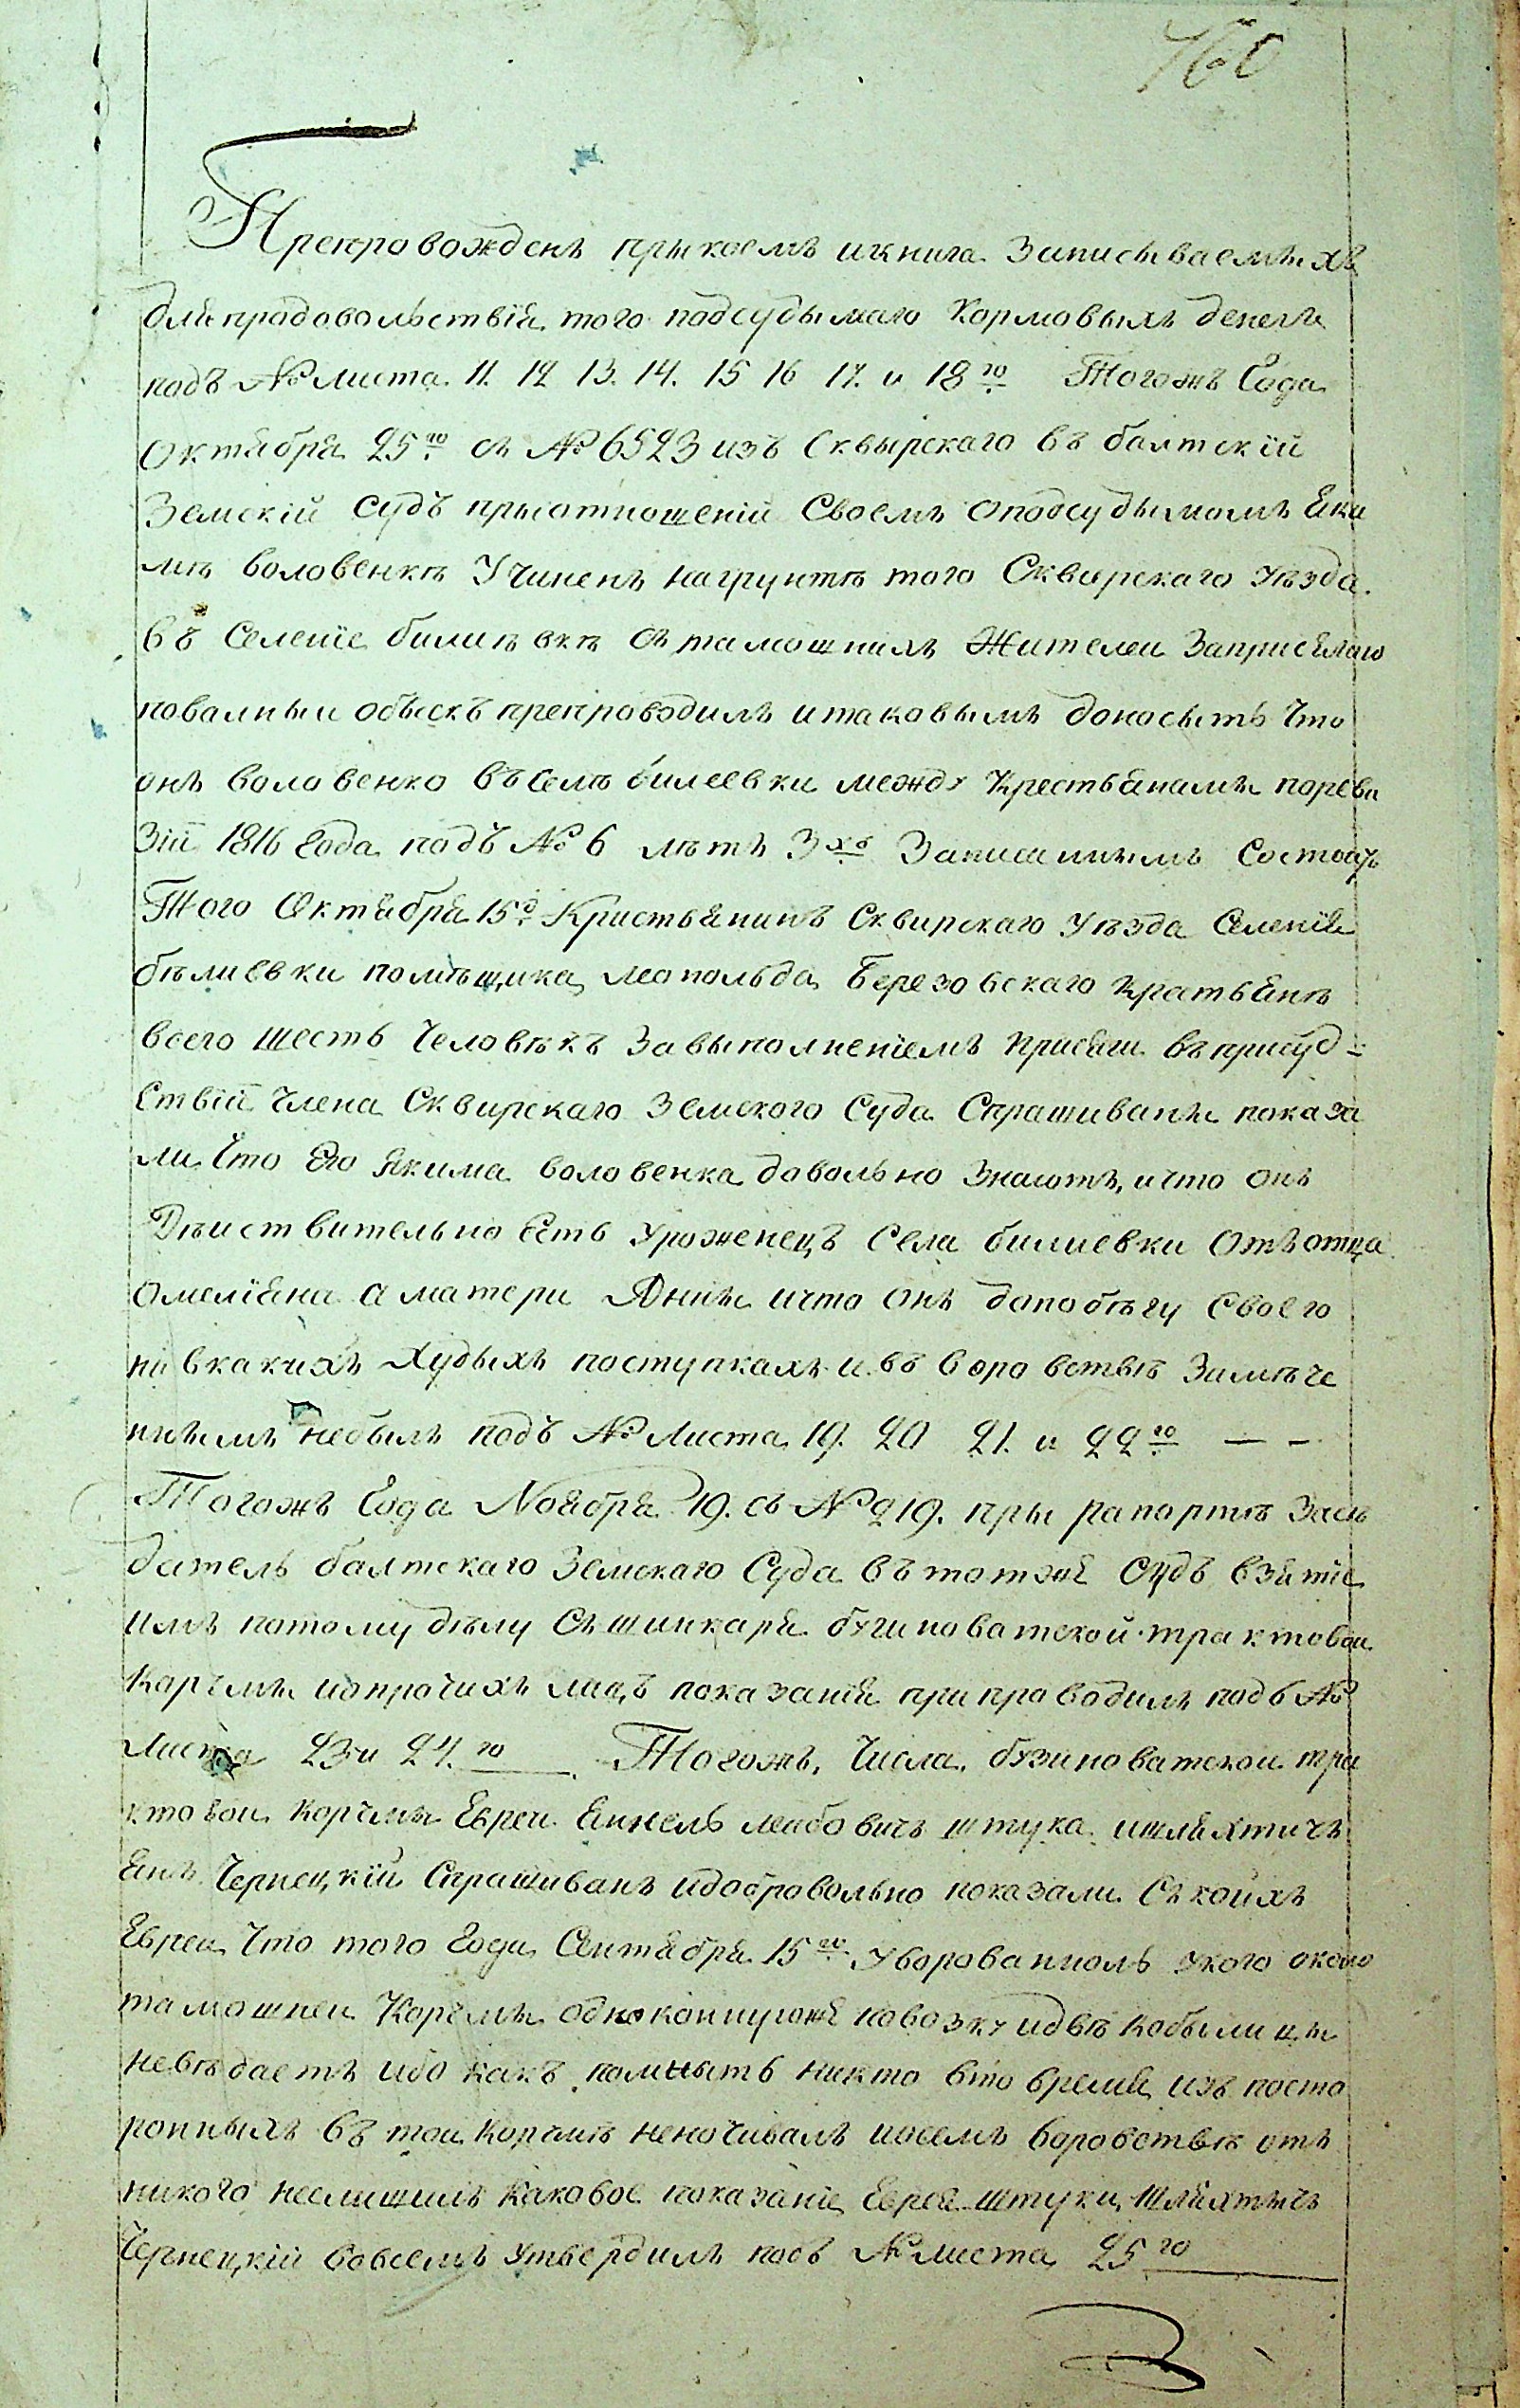 760
Препровожденъ прыкоемъ икнига записываемыхъ
для продовольствія того подсудымаго кормовыхъ денегъ
подъ № листа 11. 12 13. 14. 15 16 17. и 18го Тогожъ Года
Октября 25го съ № 6523 изъ Сквырскаго въ балтскій
Земскій Судъ прыотношеній Своемъ оподсудымомъ Яки
мѣ воловенкѣ Учиненъ нагрунтѣ того Сквирскаго Уѣзда
въ Селеніе билиѣвкѣ сътамошнихъ Жителеи Заприсягаю
повалныи обыскъ препроводилъ итаковымъ доносытъ Что
онъ воловенко въселѣ билеевки между Крестьянамы пореви
Зіи 1816 Года подъ № 6 лѣтъ 3хъ Записаннымъ Состоитъ
Того Октября 15го Кристьянинъ Сквирскаго Уѣзда Селенія
бѣлиевки помѣщика леопольда Березовскаго Кратьянъ
всего шесть Человѣкъ Завыполненіемъ присяги въприсуд-
Ствіи Члена Сквирскаго Земского Суда Спрашиваны показа
ли Что Его Якима воловенка довольно Знаютъ, ичто онъ
Дѣиствительно Есть Уроженецъ Села билиевки Отъ отца
Омеліяна а матери Анны ичто онъ допобѣгу Своего
ни вкакихъ Худыхъ поступкахъ и въ воровствѣ Замѣче
ннымъ небылъ подъ № листа 19. 20 21. и 22го — —
Тогожъ Года Ноября 19. съ № 219. при рапортѣ Засѣ
датель балтскаго Земскаго Суда въ тотже Судъ взятіе
имъ потому дѣлу Съшинкаря бузиноватской трактовои
Карчмы ипрочихъ лицъ показанія припроводилъ подъ №
листа 23 и 24.го Тогожъ Числа бузиноватскои тра
ктовои Корчмы Евреи Яинель леибовичъ штука ишляхтичъ
Янъ Чернецкій Спрашиванъ идобровольно показали Съкоихъ
Евреи Что того Года Сентября 15го Уворованиолъ укого около
тамошнеи Корчмы одноконную повозку идвѣ кобылицы
невѣдаетъ ибо какъ помнытъ никто вто время изъ посто
ронныхъ въ тои корчмѣ неночивалъ иосемъ воровствѣ отъ
никого неслишилъ Каковое показаніе Еврея штуки, Шляхтычъ
Чернецкій вовсемъ Утвердилъ подъ № листа 25го